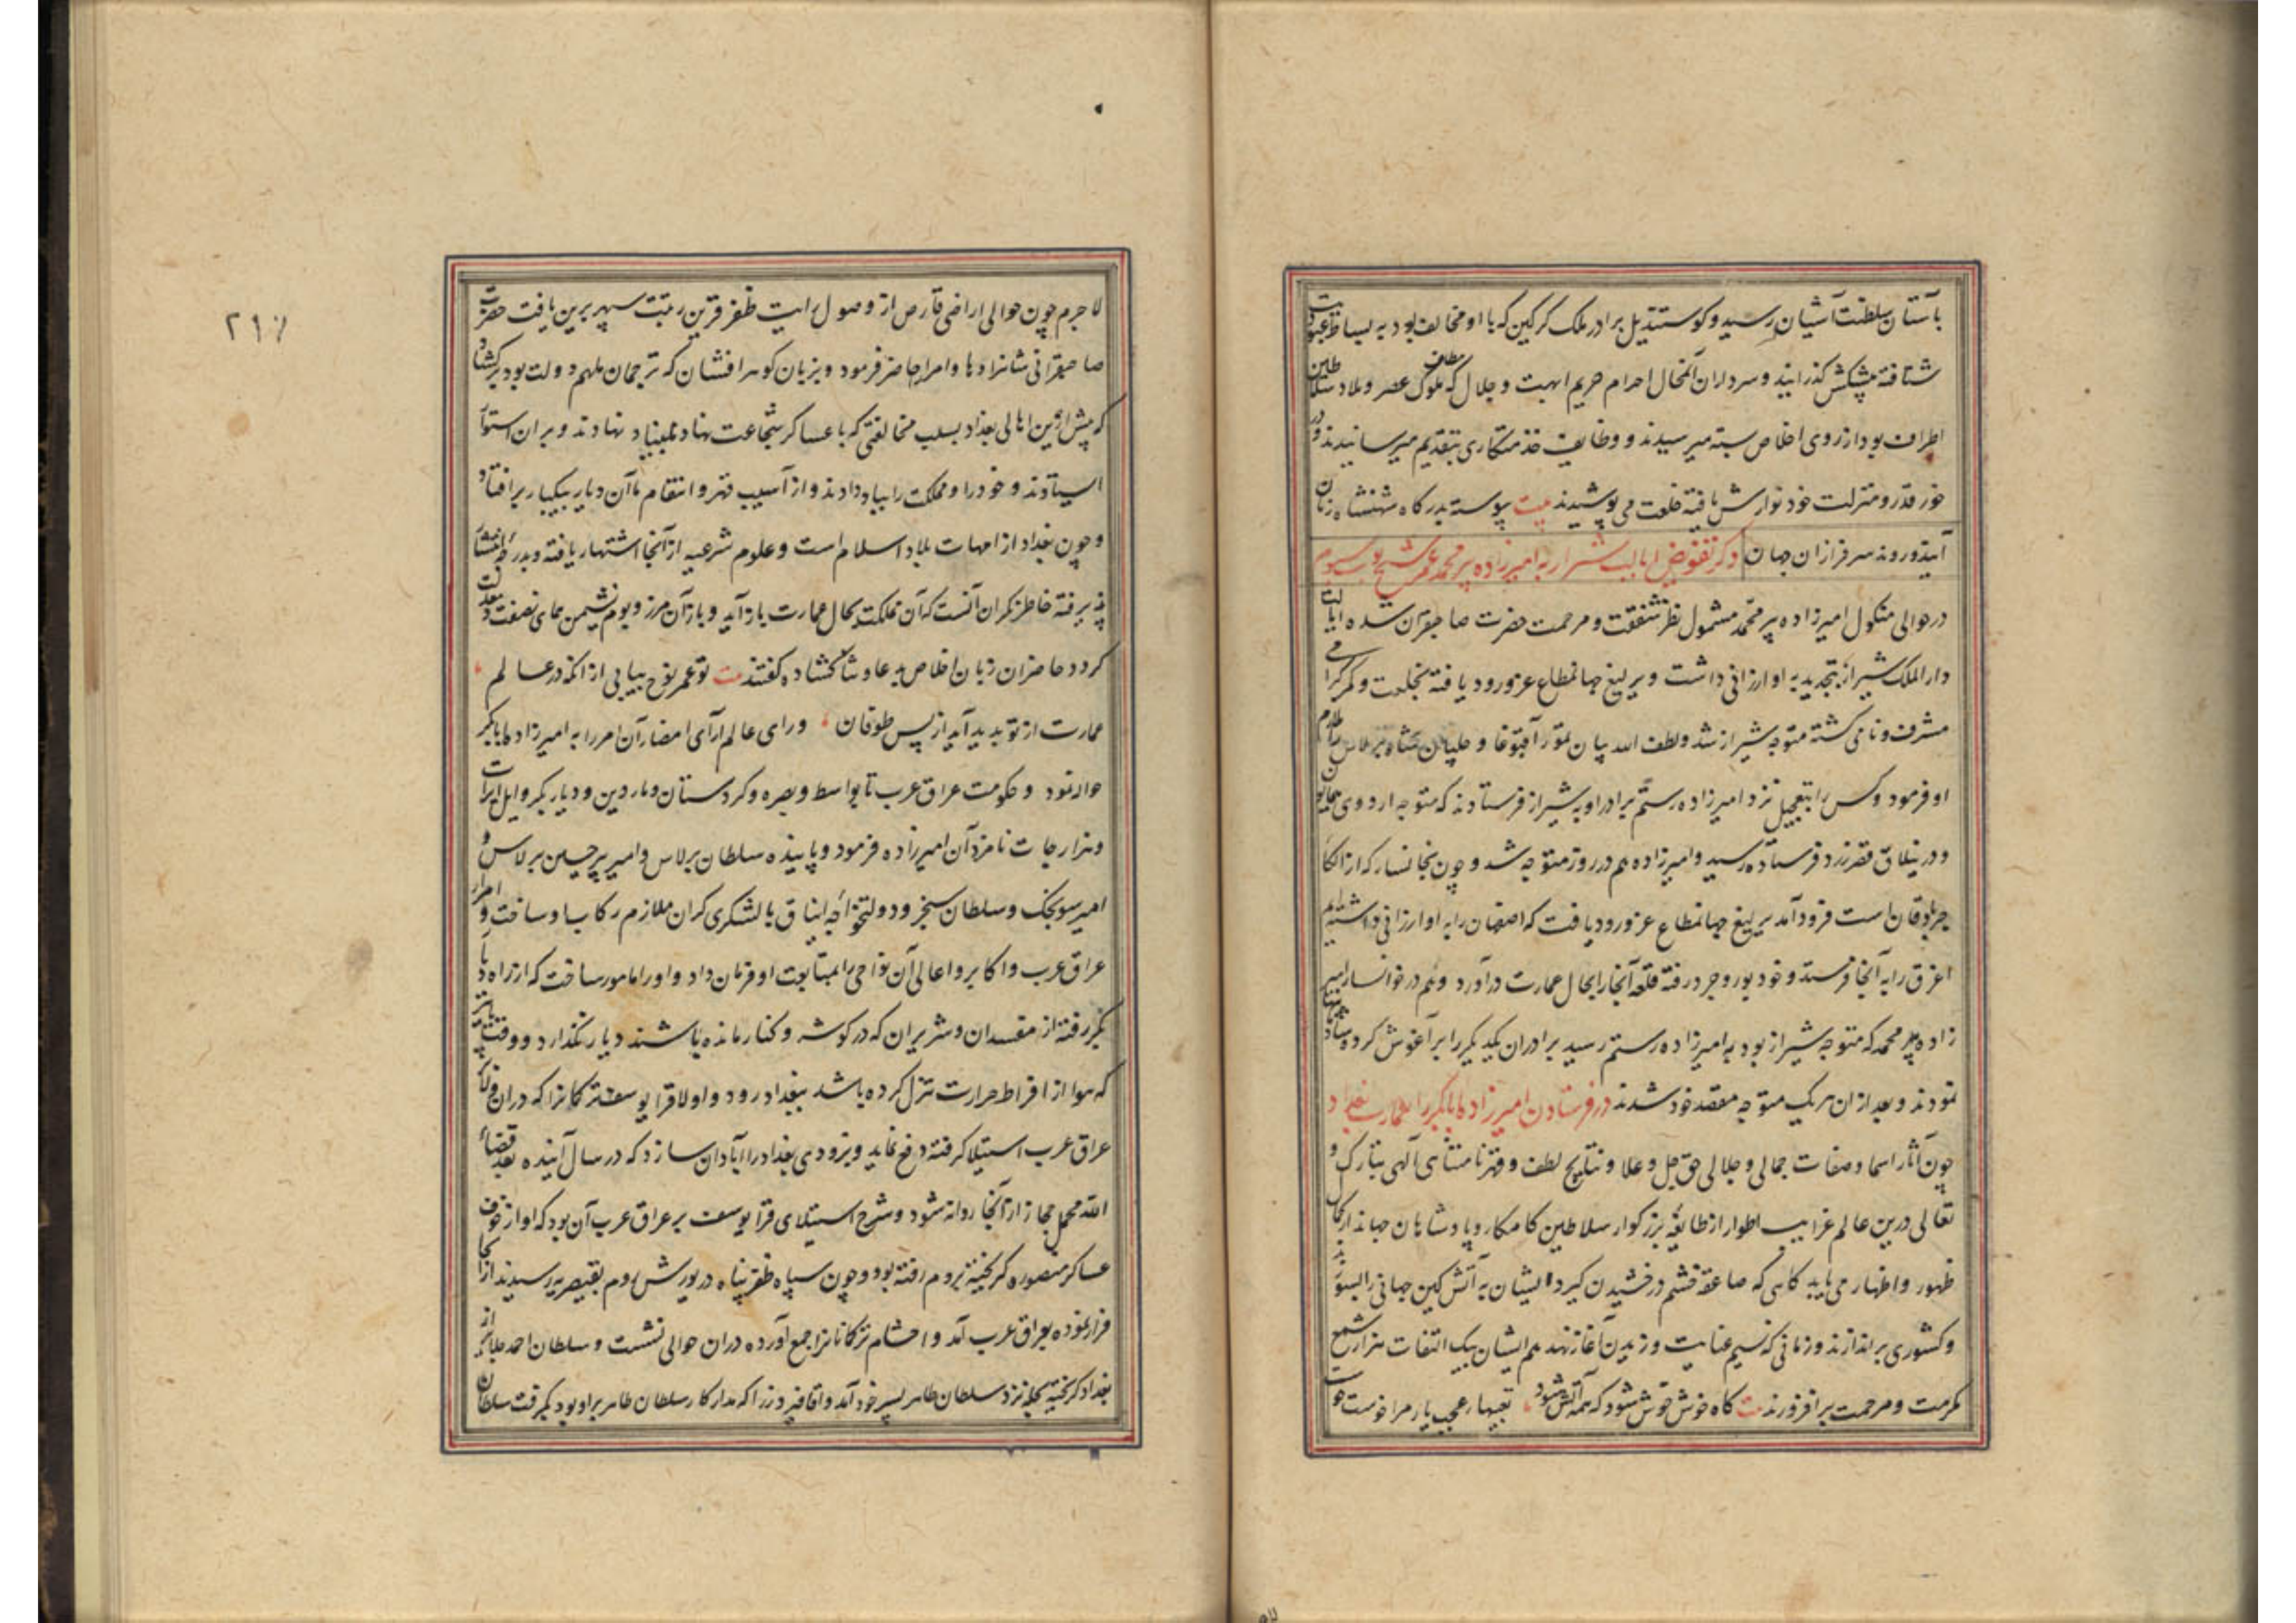 بآستان سلطنت آشیان رسید و کوستندیل برادر ملک کرکین که با او مخالف بود به بساط عبودیت
شتافته پیشکش کذرانید و سرداران آنمحال احرام حریم ابهت و جلال که مطاف ملوک عصر و ملاذ سلاطین
اطراف بود از روی اخلاص بسته میرسیدند و وظایف خدمتکاری بتقدیم میرسانیدند و در
خور قدر و منزلت خود نوازش یافته خلعت می پوشیدند بیت پیوسته بدرکاه شهنشاه زمان
آیند و روند سرفرازان جهان ذکر تفویض ایالت شیراز به امیرزاده پیر محمد عمر شیخ
در حوالی منکول امیرزاده پیر محمد مشمول نظر شفقت و مرحمت حضرت صاحبقران شده ایالت
دار الملک شیراز بتجدید به او ارزانی داشت و یرلیغ جهانمطاع عز ورود یافته بخلعت و کمر کرامی
مشرف و نامی کشته متوجه شیراز شد و لطف الله بیان تمور آقبوغا و جلبان شاه برلاس را ملازم
او فرمود و کس را بتعجیل نزد امیرزاده رستم برادر او به شیراز فرستادند که متوجه اردوی همایون
و در ییلاق قصر زرد فرستاده رسید و امیرزاده هم در روز متوجه شد و چون بخانسار که از الکاء
جربادقان است فرود آمد یرلیغ جهانمطاع عز ورود یافت که اصفهان را به او ارزانی داشتیم
اغرق را به آنجا فرستد و خود بوروجرد رفته قلعه آنجا را بحال عمارت درآورد و هم در خوانسار امیر
زاده پیر محمد که متوجه شیراز بود به امیرزاده رستم رسید برادران یکدیکر را برآغوش کرده شادیها
نمودند و بعد از ان هریک متوجه مقصد خود شدند در فرستادن امیرزاده ابابکر را بعمارت بغداد
چون آثار اسما و صفات جمالی و جلالی حق جل و علا و نتایج لطف و قهر نامتناهی آلهی تبارک و
تعالی درین عالم غرایب اطوار از طایفه بزرکوار سلاطین کامکار و پادشاهان جهاندار کمال
ظهور و اظهار می یابد کاهی که صاعقه خشم درخشیدن کیرد ایشان به آتش کین جهانی را بسوزند
و کشوری براندازند و زمانی که نسیم عنایت وزیدن آغاز نهد هم ایشان بیک التفات هزار شمع
مکرمت و مرحمت برافروزند بیت کاه خوش خوش شود که همه آتش شود تعبیهای عجب یار مرا خوست خوست
لاجرم چون حوالی اراضی قارص از وصول رایت ظفر قرین رتبت سپهر برین یافت حضرت
صاحبقرانی شاهزادها و امرا را حاضر فرمود و بزبان کوهر افشان که ترجمان ملهم دولت بود برکشاد
که پیش ازین اهالی بغداد بسبب مخالفتی که با عساکر شجاعت نهاد بنیاد نهادند و بر ان استوار
ایستادند و خود را و مملکت را بباد دادند و از آسیب قهر و انتقام ما آن دیار بیکبار برافتاد
و چون بغداد از امهات بلاد اسلام است و علوم شرعیه از آنجا اشتهار یافته و بدرجه انتشار
پذیرفته خاطر نکران آنست که آن مملکت بحال عمارت باز آید و باز آن مرز و بوم نشیمن همای نصفت و معدلت
کردد حاضران زبان اخلاص بدعا و ثنا کشاده کفتند بیت تو عمر نوح بیابی از انکه در عالم
عمارت از تو پدید آید از پس طوفان و رای عالم آرای امضاء آن امر را به امیرزاده ابابکر
حواله نمود و حکومت عراق عرب تا بواسط و بصره و کردستان و ماردین و دیار بکر و ایل اویرات
و هزارجات نامزد آن امیرزاده فرمود و پاینده سلطان برلاس و امیر پیر حسین برلاس و
امیر سونجک و سلطان سنجر و دولتخواجه ایناق با لشکری کران ملازم رکاب او ساخت و امراء
عراق عرب و اکابر و اعالی آن نواحی را بمتابعت او فرمان داد و او را مامور ساخت که از راه دیار
بکر رفته از مفسدان و شریران که در کوشه و کنار مانده باشند دیار نکذارد و وقت پاییز
که هوا از افراط حرارت تنزل کرده باشد ببغداد رود و اولا قرا یوسف ترکمانرا که دران ولا
عراق عرب استیلا کرفته دفع نماید و بزودی بغداد را آبادان سازد که در سال آینده بعد قضاء
الله محمل حجاز از آنجا روانه شود و شرح استیلای قرا یوسف بر عراق عرب آن بود که او از خوف
عساکر منصوره کریخته بروم رفته بود و چون سپاه ظفر پناه در یورش روم بقیصریه رسیدند از آنجا
فرار نموده بعراق عرب آمد و احشام ترکمانانرا جمع آورده دران حوالی نشست و سلطان احمد جلایر از
بغداد کریخته بحله نزد سلطان طاهر پسر خود آمد و اقا فیروز را که مدار کار سلطان طاهر بر او بود بکرفت سلطان
۲۱۷